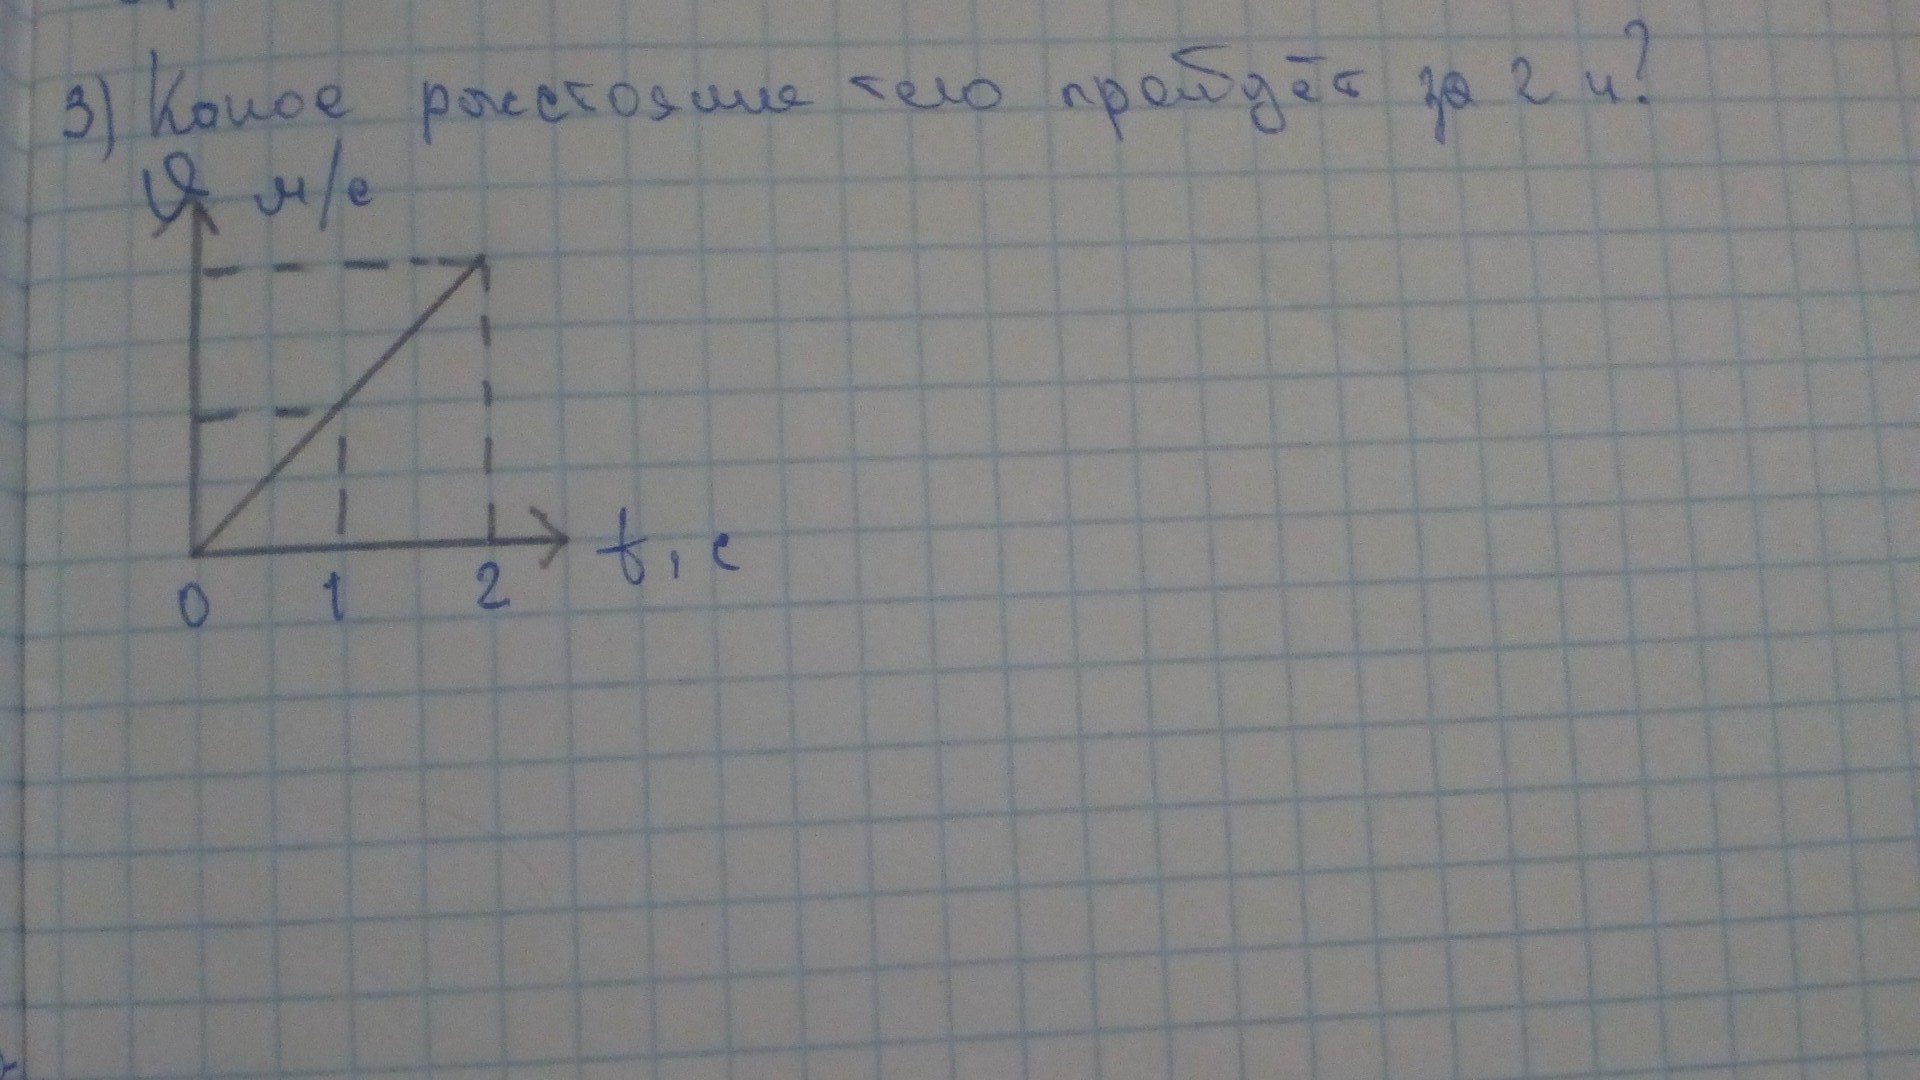 3) Какое расстояние тело пройдёт за 2 ч?
υ м/с
t, с
0 1 2